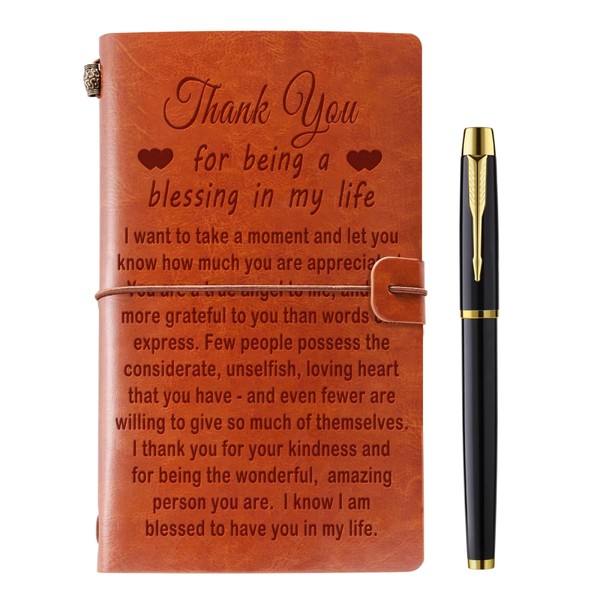 Thank You
for being a
blessing in my life
I want to take a moment and let you
know how much you are appreciated
You are a true angel to me, and
more grateful to you than words
express. Few people possess the
considerate, unselfish, loving heart
that you have - and even fewer are
willing to give so much of themselves.
I thank you for your kindness and
for being the wonderful, amazing
person you are. I know I am
blessed to have you in my life.